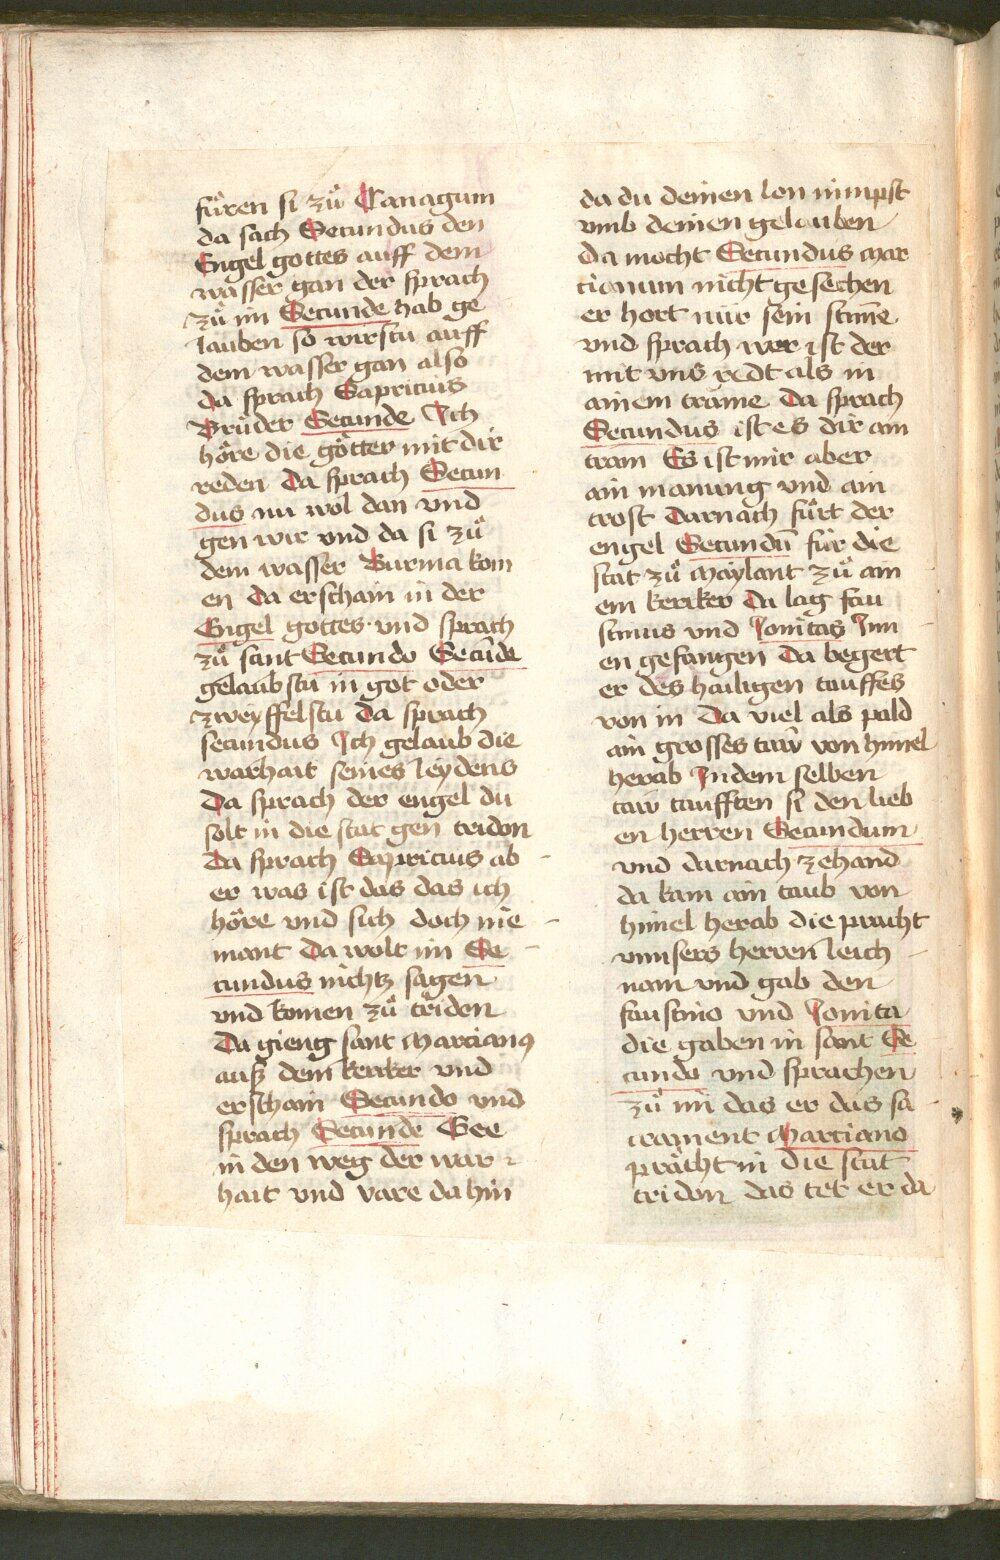 fůren si zů Canagum
da sach Secundus den
Engel gottes auff dem
wasser gan der sprach
zů im Secunde hab ge
lauben so wirstu auff
dem wasser gan also
da sprach Sapricius
Brůder Secunde Ich
hőre die gőtter mit dir
reden Da sprach Secun
dus nu wol dan vnd
gen wir vnd da si zů
dem wasser Burma kom
en da erschain in der
Engel gottes vnd sprach
zů sant Secundo Secūde
gelaubstu in got oder
zweyffelstu Da sprach
secundus Ich gelaub die
warhait seines leydens
Da sprach der engel du
solt in die stat gen tridon
Da sprach Capricius ab
er was ist das das ich
hőre vnd sich doch nie
mant Da wolt im Se
cundus nichtz sagen
vnd komen zů triden
Da gieng sant Marcianus
auß dem kercker vnd
erschain Secundo vnd
sprach Secunde Gee
in den weg der war
hait vnd vare dahin
da du deinen lon nimpst
vmb deinen gelauben
Da mocht Secundus Mar
cianum nicht gesechen
er hort nür sein stim̄e
vnd sprach wer ist der
mit vns redt als in
ainem trame Da sprach
Secundus ist es dir ain
tram Es ist mir aber
ain manung vnd ain
trost Darnach fůrt der
engel Secundū für die
stat zů Maylant zů ain
em kercker Da lag fau
stinus vnd Jonitas Inn
en gefangen Da begert
er des hailigen tauffes
von in Da viel als pald
ain grosses taw von himel
herab In dem selben
taw taufften si den lieb
en herren Secundum
vnd darnach zehand
da kam ain taub von
himel herab die pracht
vnnsers herren leich
nam vnd gab den
faustino vnd Jonita
die gaben in sant Se
cundo vnd sprachen
zů im das er das sa
crament Marciano
prächt in die stat
tridon das tet er da